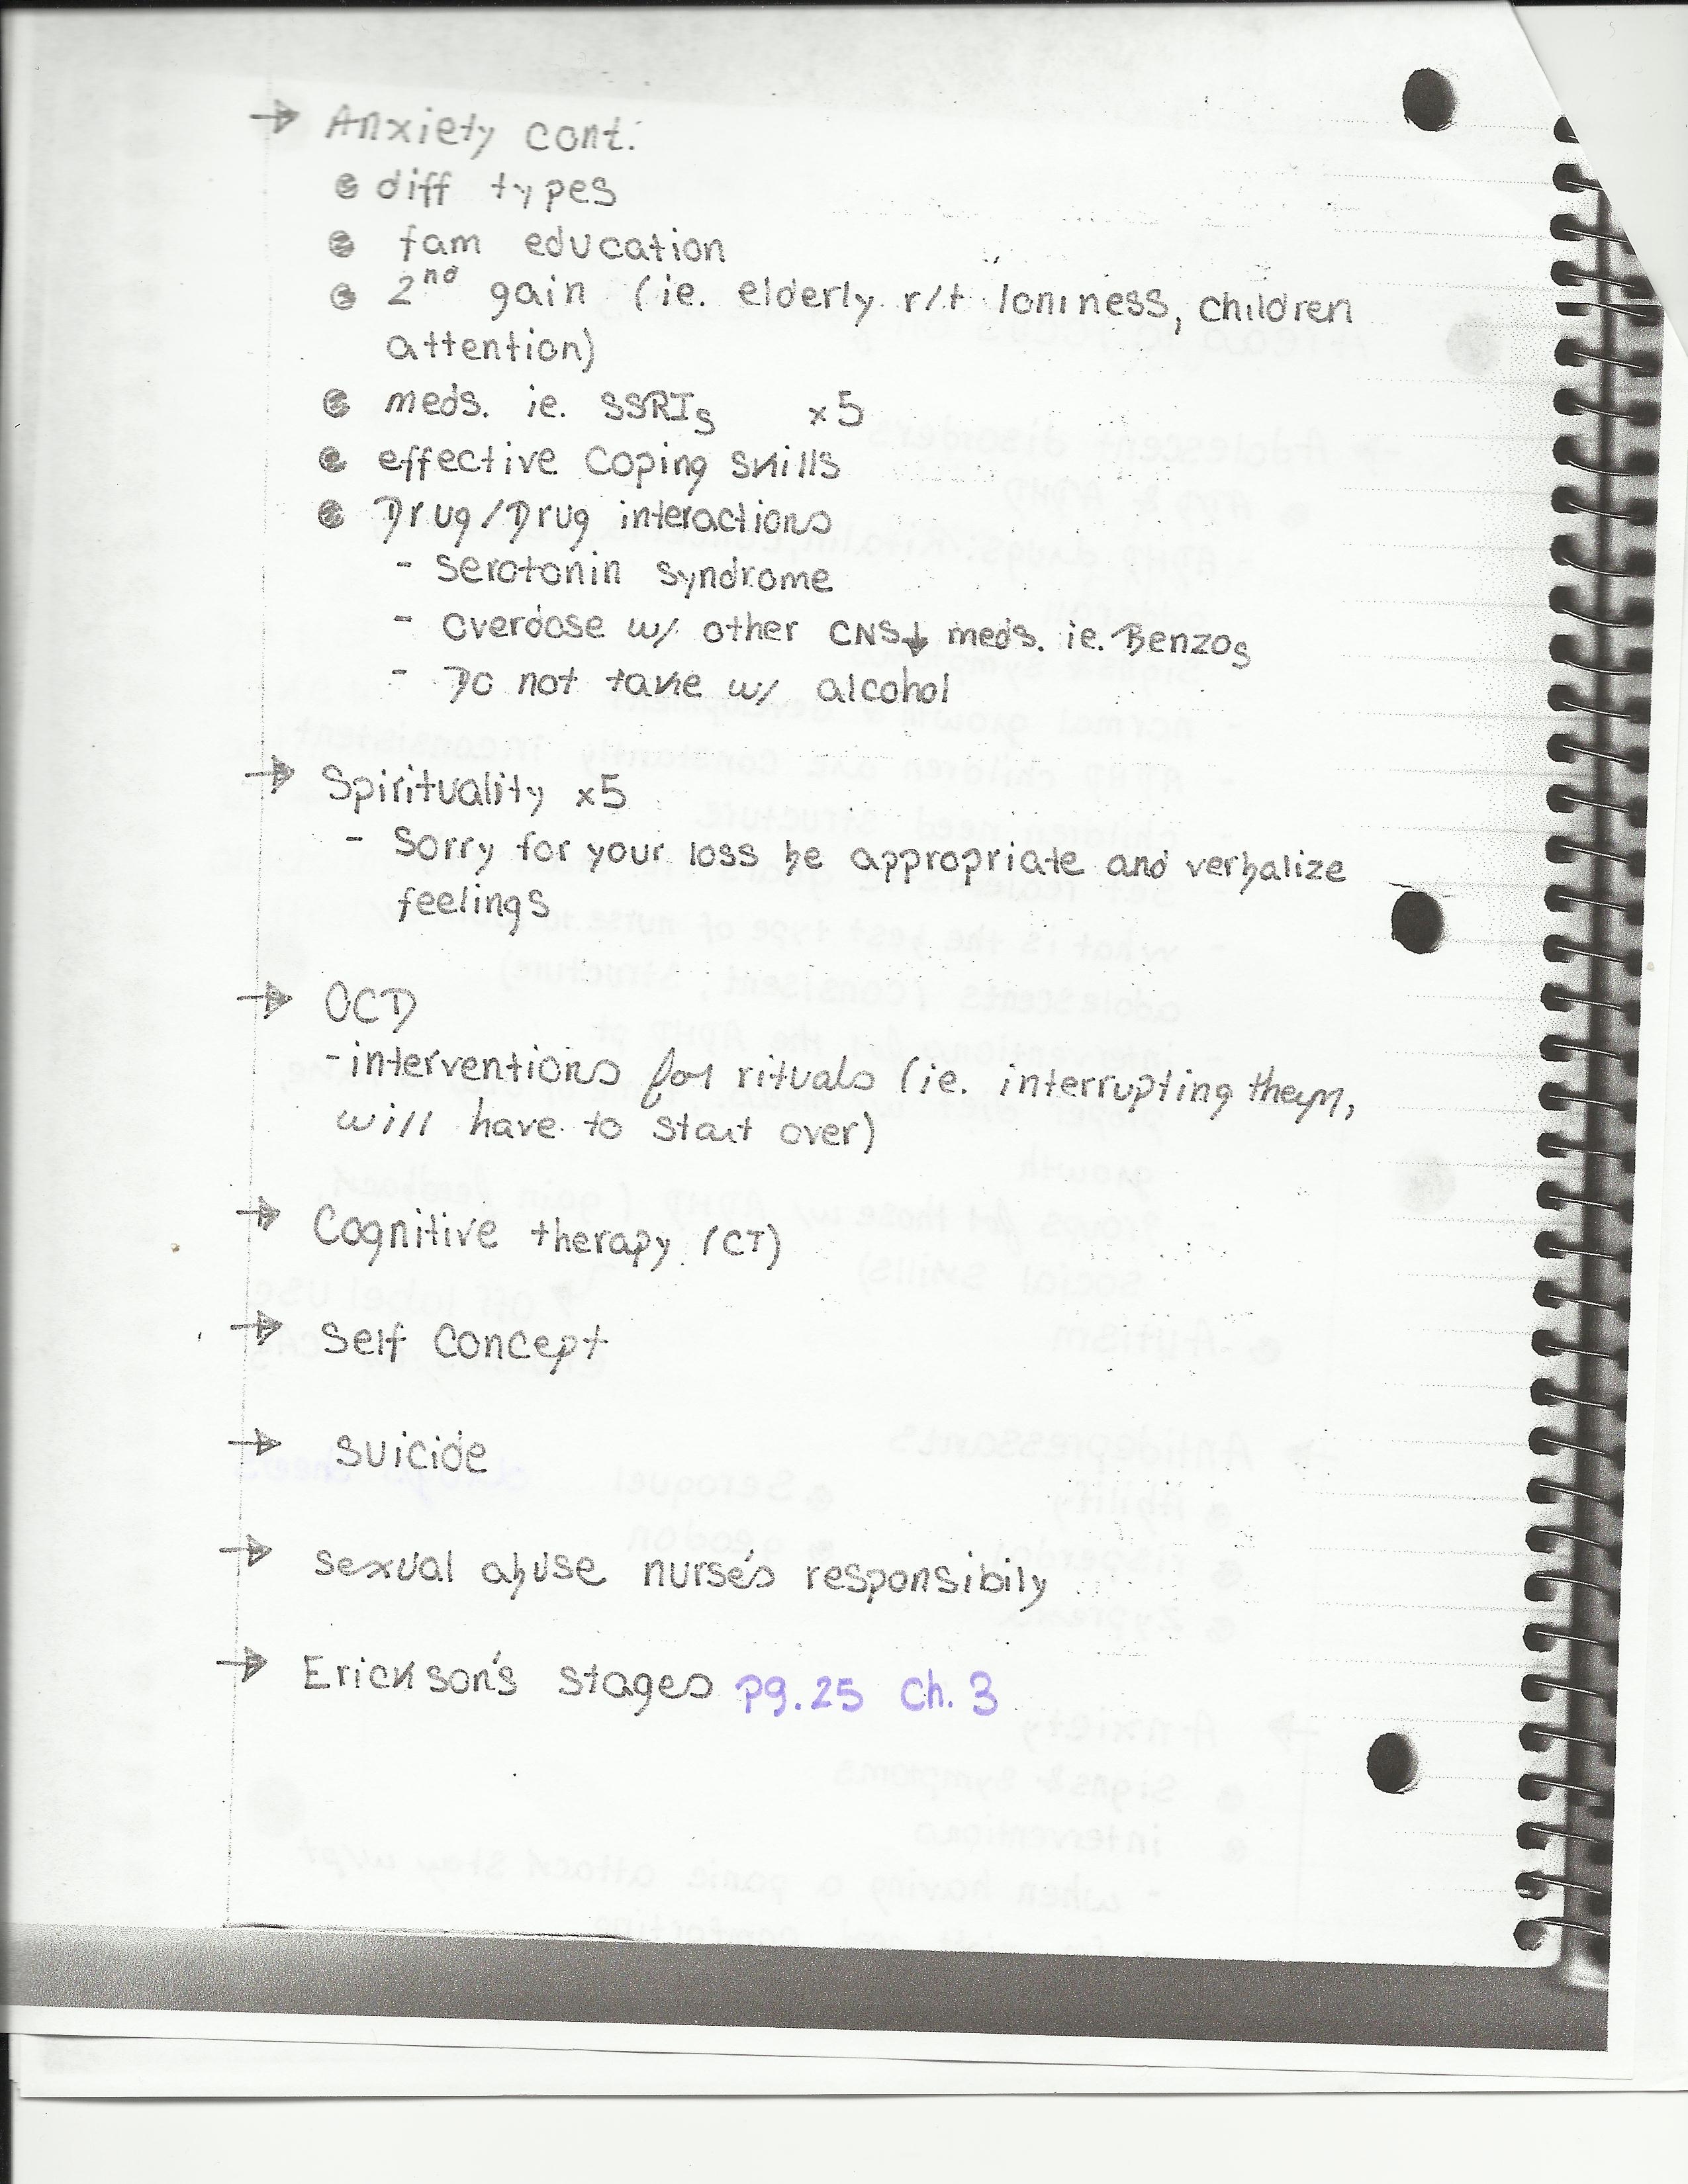 → Anxiety cont.
• diff types
• fam education
• 2nd gain (ie. elderly r/t loniness, children
attention)
• meds. ie. SSRIs x5
• effective coping skills
• Drug/Drug interactions
- serotonin syndrome
- overdose w/ other CNS↓ meds. ie. Benzos
- Do not take w/ alcohol
→ Spirituality x5
- Sorry for your loss be appropriate and verbalize
feelings
→ OCD
- interventions for rituals (ie. interrupting them,
will have to start over)
→ Cognitive therapy (CT)
→ Self Concept
→ suicide
→ sexual abuse nurse's responsibily
→ Erickson's stages pg. 25 Ch. 3